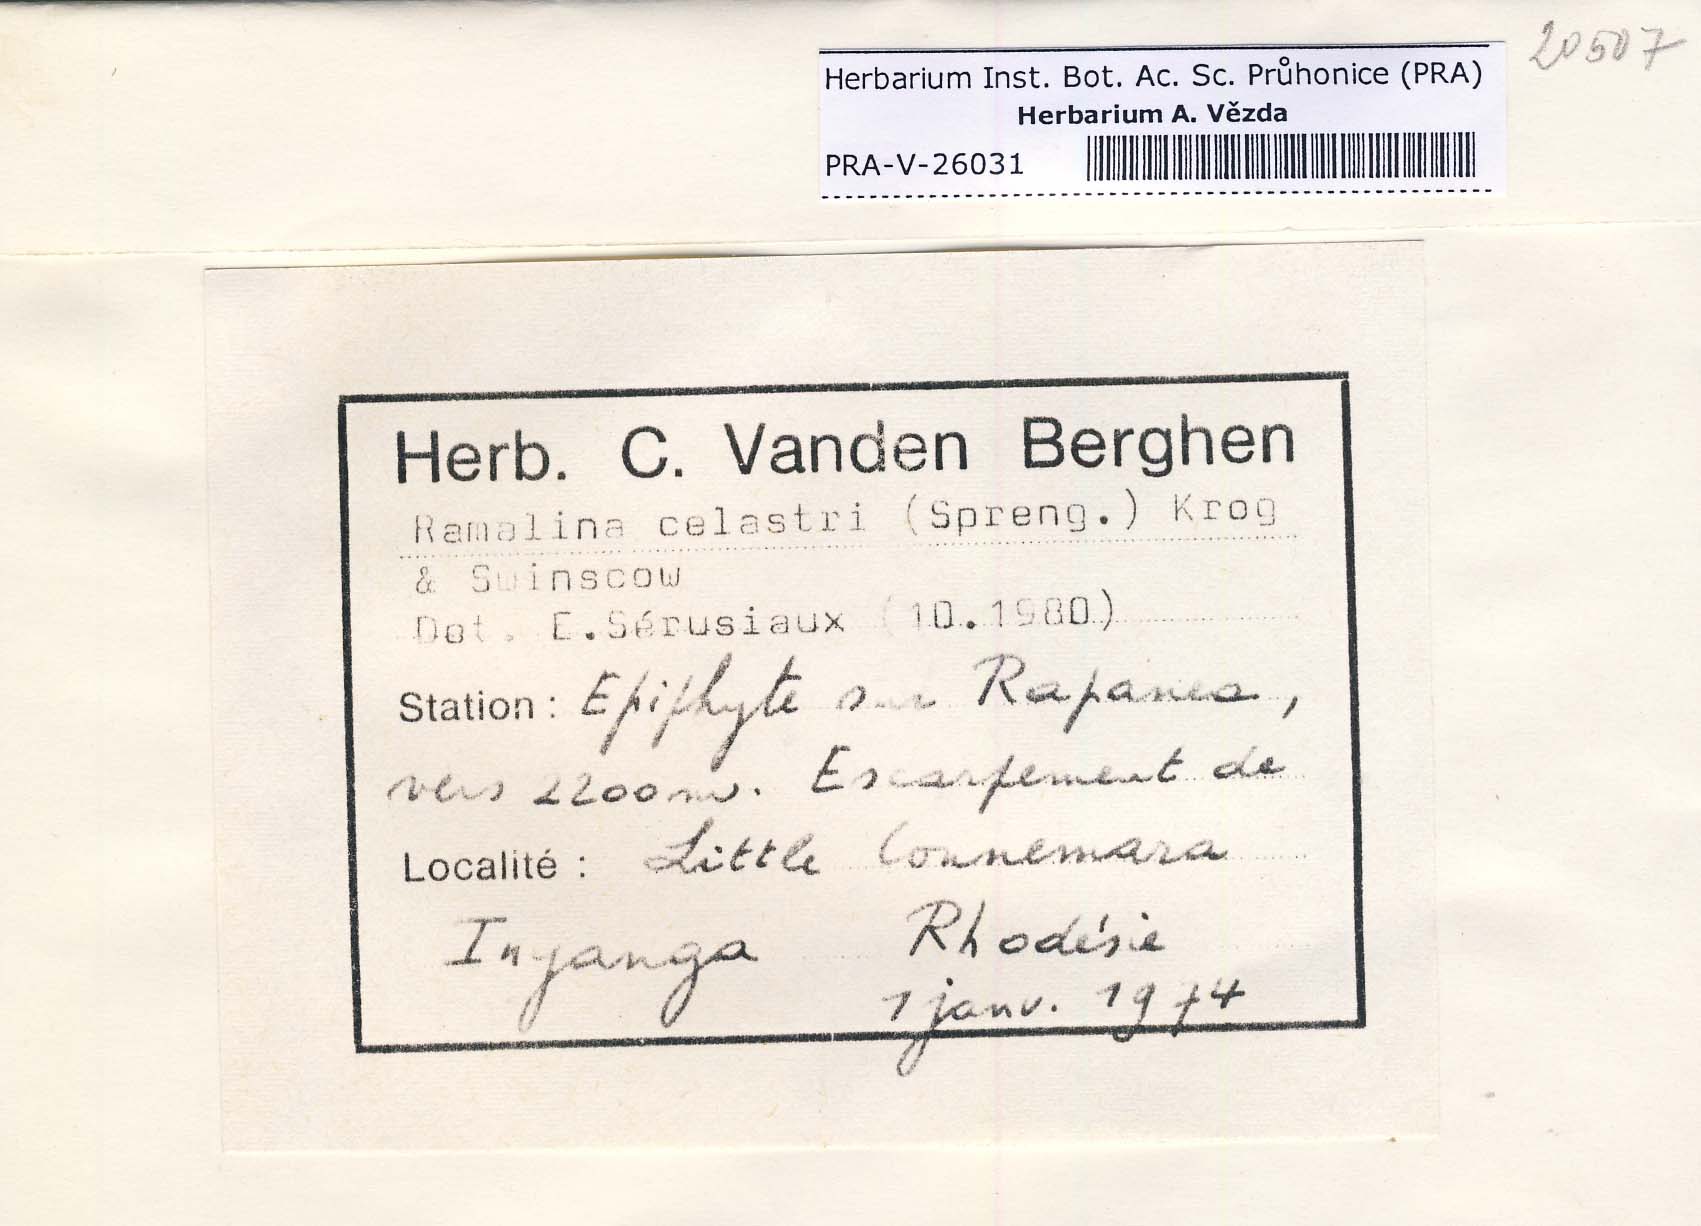 20507
Herbarium Inst. Bot. Ac. Sc. Průhonice (PRA)
Herbarium A. Vězda
PRA-V-26031
Herb. C. Vanden Berghen
Ramalina celastri (Spreng.) Krog
& Swinscow
Det. E.Sérusiaux (10.1980)
Station : Epiphyte sur Rapanea,
vers 2200 m. Escarpement de
Localité : Little Connemara
Inyanga Rhodésie
1 janv. 1974